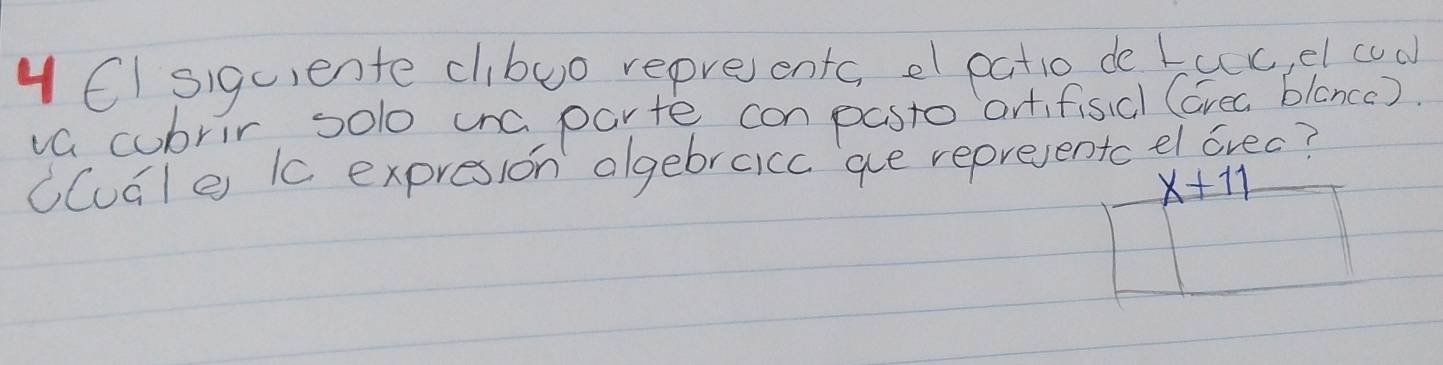 4 El siguiente dibujo representa el patio de Luca, el cual
va cubrir solo una parte con pasto artifisial (área blanca).
¿Cuál es la expresión algebraica que representa el área?
x+11